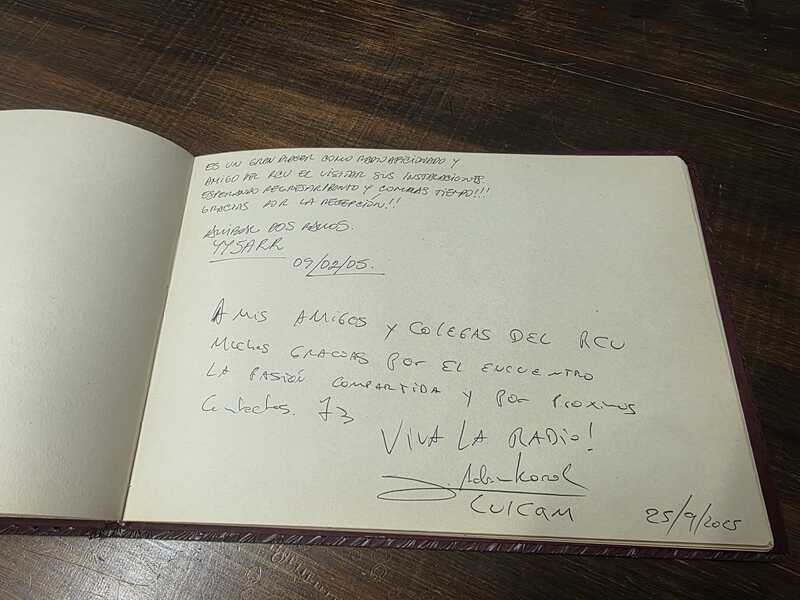 ES UN GRAN PLACER COMO RADIOAFICIONADO Y
AMIGO DEL RCU EL VISITAR SUS INSTALACIONES
ESPERANDO REGRESAR PRONTO Y CON MAS TIEMPO!!!
GRACIAS POR LA RECEPCIÓN!!
ANIBAL DOS RAMOS.
YY5ARR
09/02/05.
A MIS AMIGOS Y COLEGAS DEL RCU
MUCHAS GRACIAS POR EL ENCUENTRO
LA PASIÓN COMPARTIDA Y POR PROXIMOS
Contactos. 73
VIVA LA RADIO!
LU1CQM
25/9/2025